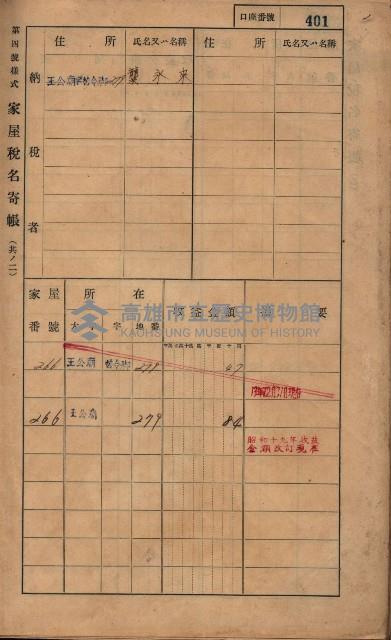 口座番號 401
第四號樣式 家屋稅名寄帳 (共ノ二)
住所 氏名又ハ名稱 住所 氏名又ハ名稱
納稅者
王公廟 279 龔永來
家屋番號 所在 收益金額 摘要
大字 字 地番
高雄市立歷史博物館
KAOHSIUNG MUSEUM OF HISTORY
266 王公廟 279 47
266 王公廟 279 84
昭和十九年收益
金額改訂現在